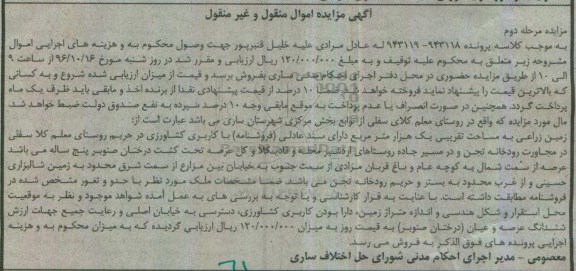 آگهی مزایده اموال منقول و غیر منقول
مزایده مرحله دوم
به موجب کلاسه پرونده ۹۴۳۱۱۸- ۹۴۳۱۱۹ له عادل مرادی علیه خلیل قنبرپور جهت وصول محکوم به و هزینه های اجرایی اموال
مشروحه زیر متعلق به محکوم علیه توقیف و به مبلغ ۱۲۰/۰۰۰/۰۰۰ ریال ارزیابی و مقرر شد در روز شنبه مورخ ۹۶/۱۰/۱۶ از ساعت ۹
الی ۱۰ از طریق مزایده حضوری در محل دفتر اجرای احکام مدنی ساری بفروش برسد و قیمت از میزان ارزیابی شده شروع و به کسانی
که بالاترین قیمت را پیشنهاد نماید فروخته خواهد شد ۱۰ درصد از قیمت پیشنهادی نقدا از برنده اخذ و مابقی باید ظرف یک ماه
پرداخت گردد. همچنین در صورت انصراف یا عدم پرداخت به موقع مابقی وجه ۱۰ درصد سپرده به نفع صندوق دولت ضبط خواهد شد.
مال مورد مزایده که واقع در روستای معلم کلای سفلی از توابع بخش مرکزی شهرستان ساری می باشد عبارت است از:
زمین زراعی به مساحت تقریبی یک هزار متر مربع دارای سند عادی (فروشنامه) با کاربری کشاورزی در حریم روستای معلم کلا سفلی
در مجاورت رودخانه تجن و در مسیر جاده روستاهای آزادشهر محله و قادیکلا و کل عرصه تحت کشت درختان صنوبر پنج ساله می باشد
عرصه از سمت شمال به کوچه عام و باغ قربان مزادی از سمت جنوب به خیابان بین مزارع از سمت شرق محدود به زمین شالیزاری
حسینی و از غرب محدود به بستر و حریم رودخانه تجن می باشد. ضمنا مشخصات ملک مورد نظر با حدو و ثغور مشخص شده در
فروشنامه مطابقت داشته است. با عنایت به قرار کارشناسی و با توجه به بررسی های به عمل آمده شواهد موجود و نظر به موقعیت
محل استقرار و شکل هندسی و اندازه متراژ زمین، دارا بودن کاربری کشاورزی، دسترسی به خیابان اصلی و رعایت جمیع جهات ارزش
ششدانگ عرصه و عیان (درختان صنوبر) به قیمت روز به میزان ۱۲۰/۰۰۰/۰۰۰ ریال ارزیابی گردیده که به میزان محکوم به و هزینه
اجرایی پرونده های فوق الذکر به فروش می رسد.
معصومی - مدیر اجرای احکام مدنی شورای حل اختلاف ساری